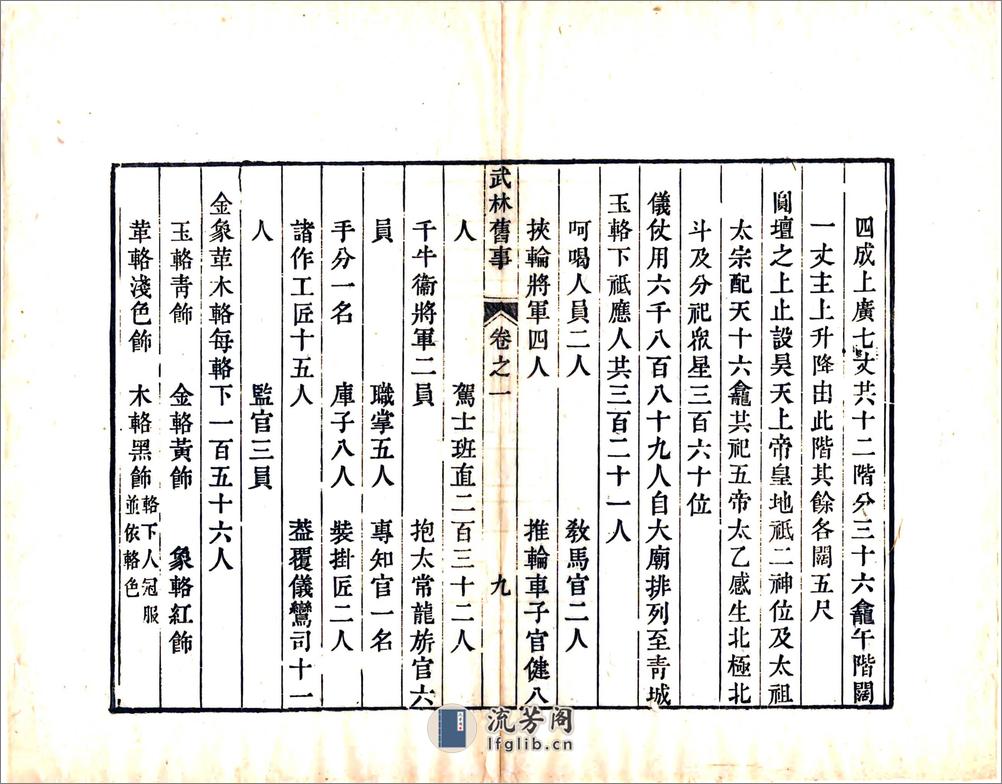 四成上廣七丈共十二階分三十六龕午階闊
一丈主上升降由此階其餘各闊五尺
圓壇之上止設昊天上帝皇地祇二神位及太祖
太宗配天十六龕共祀五帝太乙感生北極北
斗及分祀衆星三百六十位
儀仗用六千八百八十九人自太廟排列至青城
玉輅下祗應人共三百二十一人
呵喝人員二人 敎馬官二人
挾輪將軍四人 推輪車子官健八
武林舊事 卷之一 九
人 駕士班直二百三十二人
千牛衛將軍二員 抱太常龍旂官六
員 職掌五人 專知官一名
手分一名 庫子八人 裝掛匠二人
諸作工匠十五人 葢覆儀鸞司十一
人 監官三員
金象革木輅每輅下一百五十六人
玉輅青飾 金輅黃飾 象輅紅飾
革輅淺色飾 木輅黑飾 輅下人冠服並依輅色
流芳阁
lfglib.cn